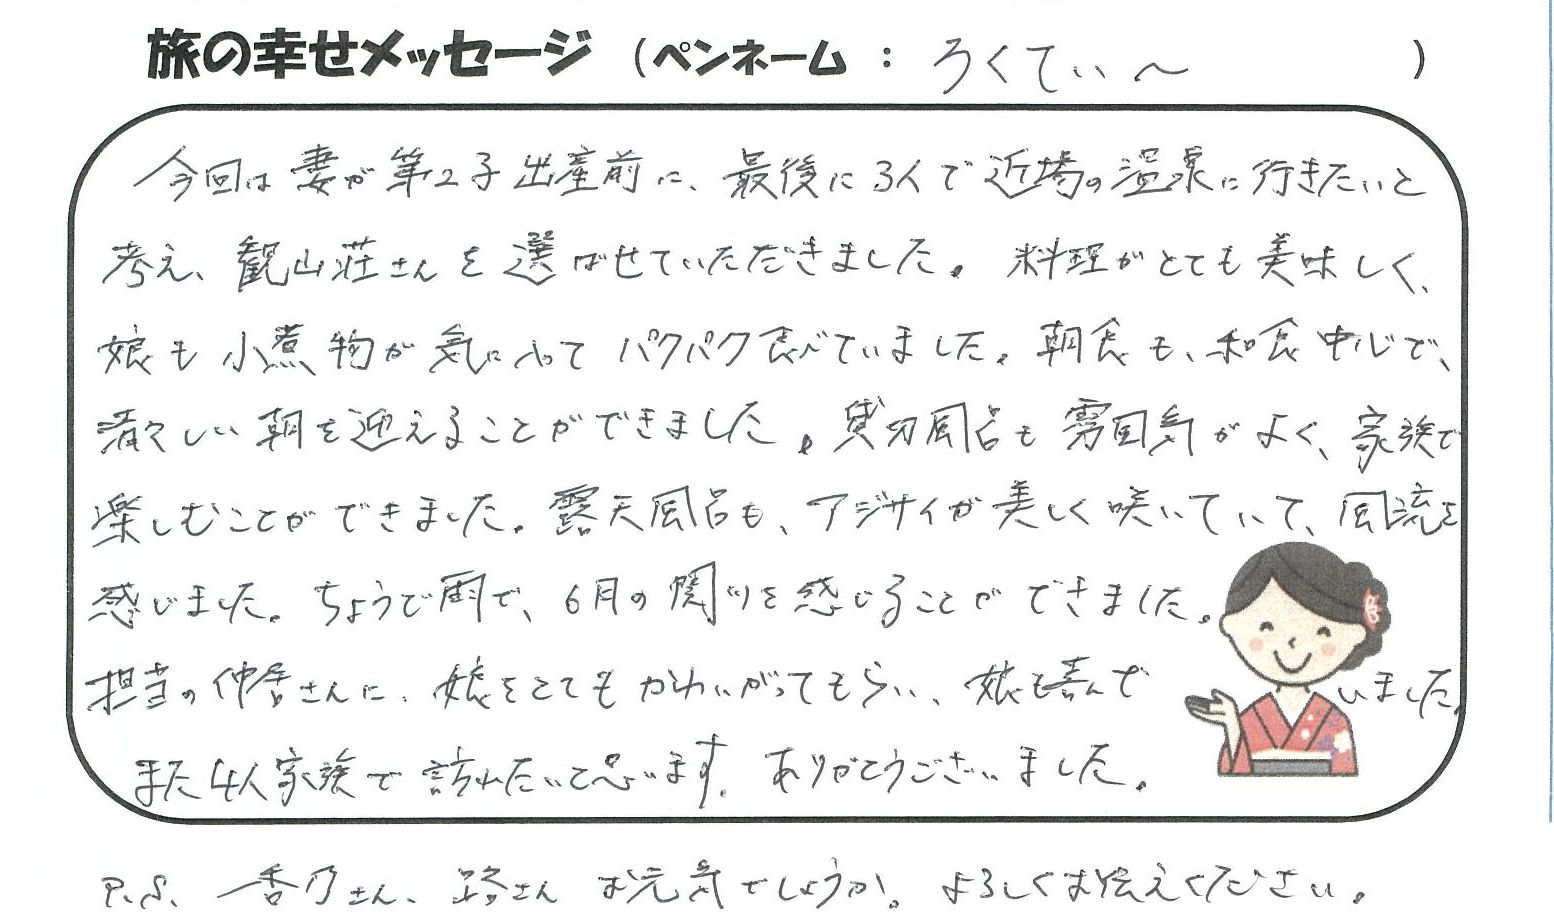 旅の幸せメッセージ (ペンネーム : ろくてぃ〜 )
今回は妻が第2子出産前に、最後に3人で近場の温泉に行きたいと
考え、観山荘さんを選ばせていただきました。料理がとても美味しく、
娘も小煮物が気に入ってパクパク食べていました。朝食も、和食中心で、
清々しい朝を迎えることができました。貸切風呂も雰囲気がよく、家族で
楽しむことができました。露天風呂も、アジサイが美しく咲いていて、風流を
感じました。ちょうど雨で、6月の関りを感じることができました。
担当の仲居さんに、娘をとてもかわいがってもらい、娘も喜んでいました。
また4人家族で訪れたいと思います。ありがとうございました。
P.S. 香乃さん、路さんお元気でしょうか。よろしくお伝えください。